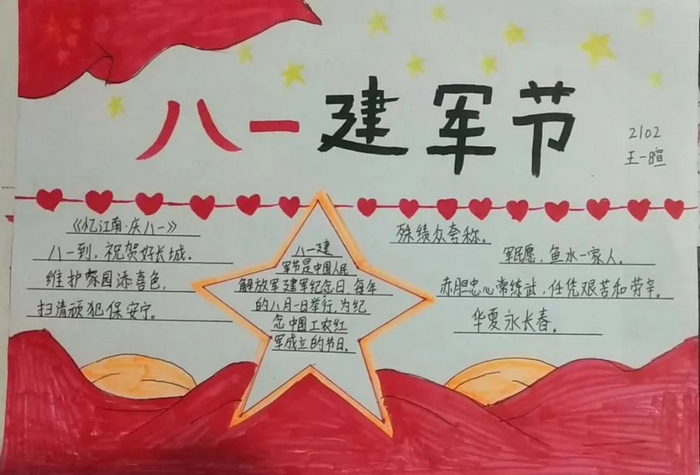 八一建军节
2102
王一暄
《忆江南·庆八一》
八一到，祝贺好长城。
维护家园添喜色，
扫清顽犯保安宁。
八一建
军节是中国人民
解放军建军纪念日，每年
的八月一日举行，为纪
念中国工农红
军成立的节日。
殊绩众夸称。
军民愿，鱼水一家人。
赤胆忠心常练武，任凭艰苦和劳辛。
华夏永长春。